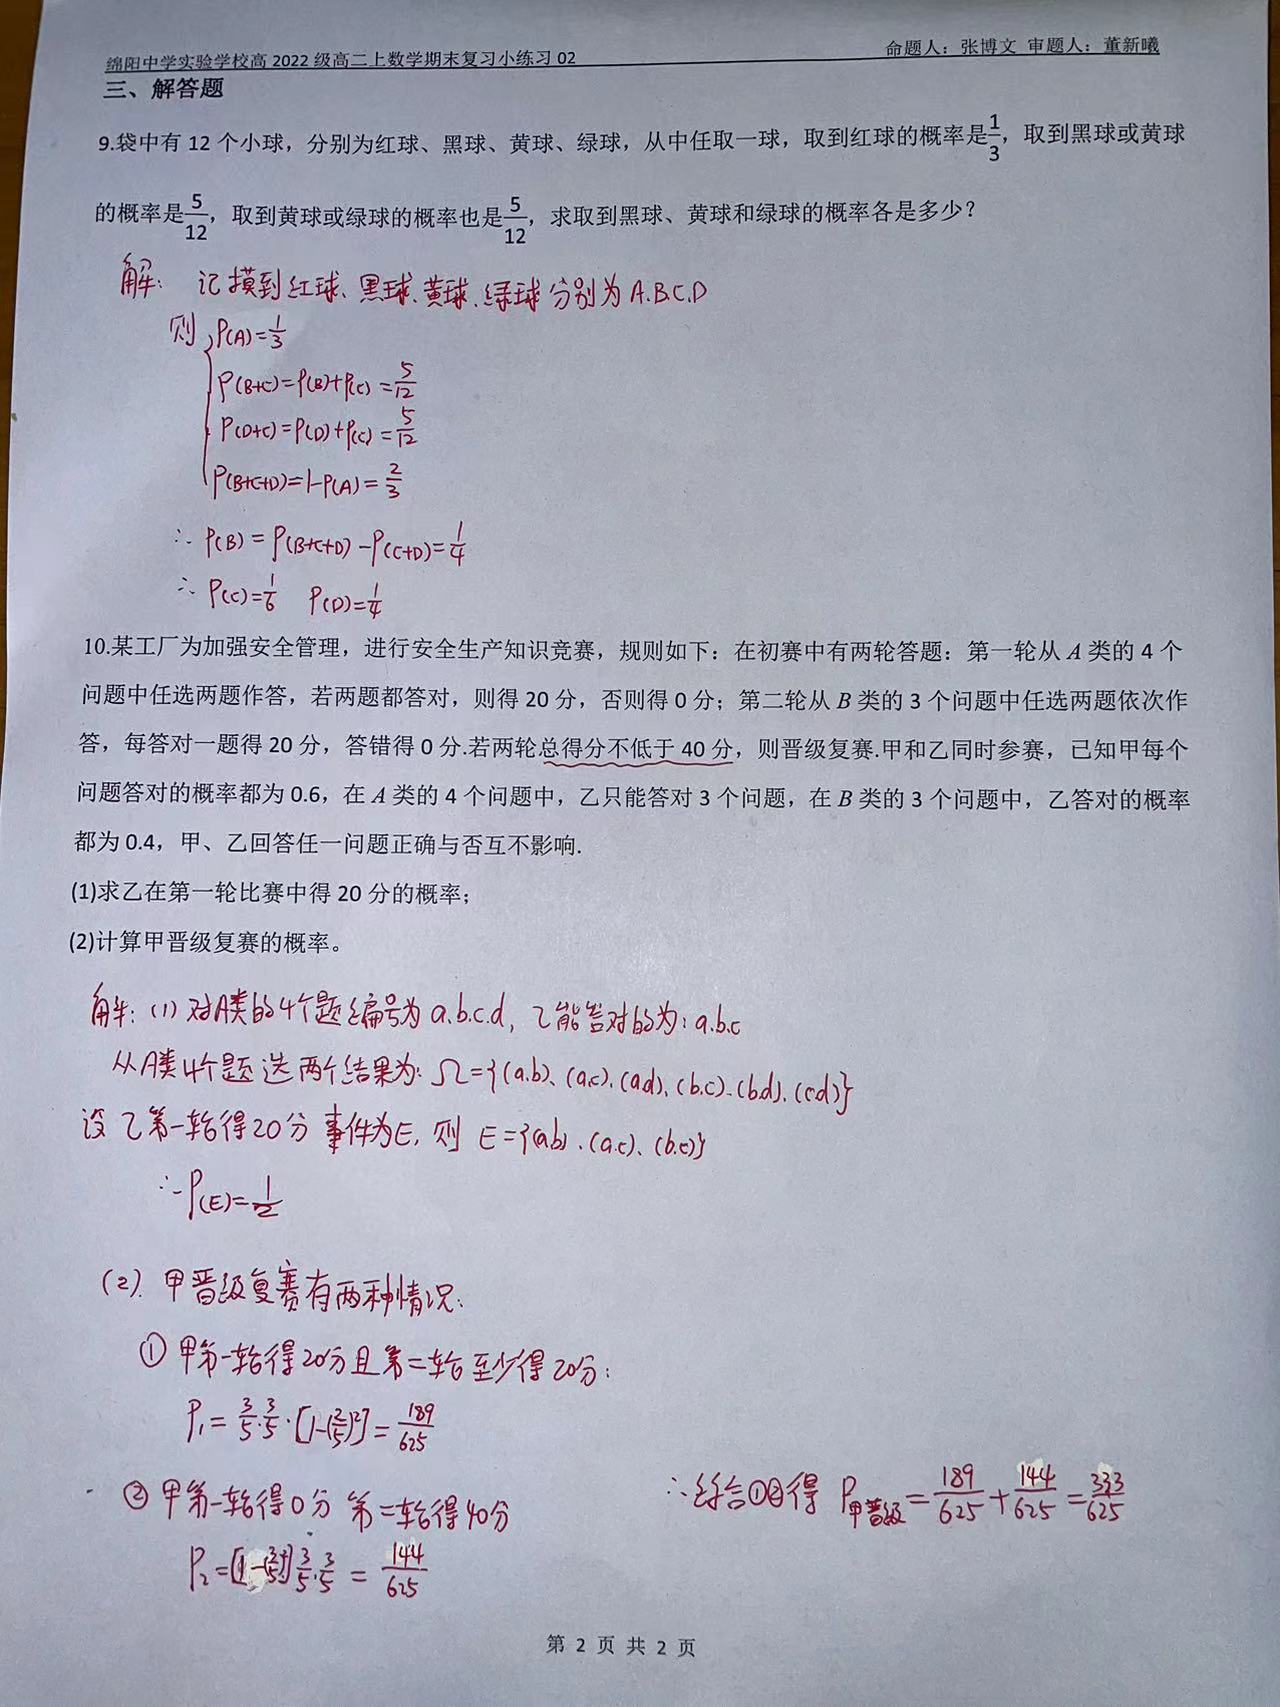 绵阳中学实验学校高 2022 级高二上数学期末复习小练习 02 命题人：张博文 审题人：董新曦
三、解答题
9.袋中有 12 个小球，分别为红球、黑球、黄球、绿球，从中任取一球，取到红球的概率是1/3，取到黑球或黄球
的概率是5/12，取到黄球或绿球的概率也是5/12，求取到黑球、黄球和绿球的概率各是多少？
解： 记摸到红球、黑球、黄球、绿球分别为 A.B.C.D
则 P(A)=1/3
P(B+C)=P(B)+P(C)=5/12
P(D+C)=P(D)+P(C)=5/12
P(B+C+D)=1-P(A)=2/3
∴ P(B)=P(B+C+D)-P(C+D)=1/4
∴ P(C)=1/6 P(D)=1/4
10.某工厂为加强安全管理，进行安全生产知识竞赛，规则如下：在初赛中有两轮答题：第一轮从 A 类的 4 个
问题中任选两题作答，若两题都答对，则得 20 分，否则得 0 分；第二轮从 B 类的 3 个问题中任选两题依次作
答，每答对一题得 20 分，答错得 0 分.若两轮总得分不低于 40 分，则晋级复赛.甲和乙同时参赛，已知甲每个
问题答对的概率都为 0.6，在 A 类的 4 个问题中，乙只能答对 3 个问题，在 B 类的 3 个问题中，乙答对的概率
都为 0.4，甲、乙回答任一问题正确与否互不影响.
(1)求乙在第一轮比赛中得 20 分的概率；
(2)计算甲晋级复赛的概率。
解：(1) 对A类的4个题编号为 a.b.c.d，乙能答对的为：a.b.c
从A类4个题选两个结果为：Ω={(a.b)、(a.c)、(a.d)、(b.c)、(b.d)、(c.d)}
设乙第一轮得20分事件为E，则 E={(a.b)、(a.c)、(b.c)}
∴P(E)=1/2
(2) 甲晋级复赛有两种情况：
① 甲第一轮得20分且第二轮至少得20分：
P₁=3/5·3/5·[1-(2/5)²]=189/625
② 甲第一轮得0分 第二轮得40分
P₂=[1-(3/5)²]3/5·3/5=144/625
∴综合①②得 P甲晋级=189/625+144/625=333/625
第 2 页 共 2 页